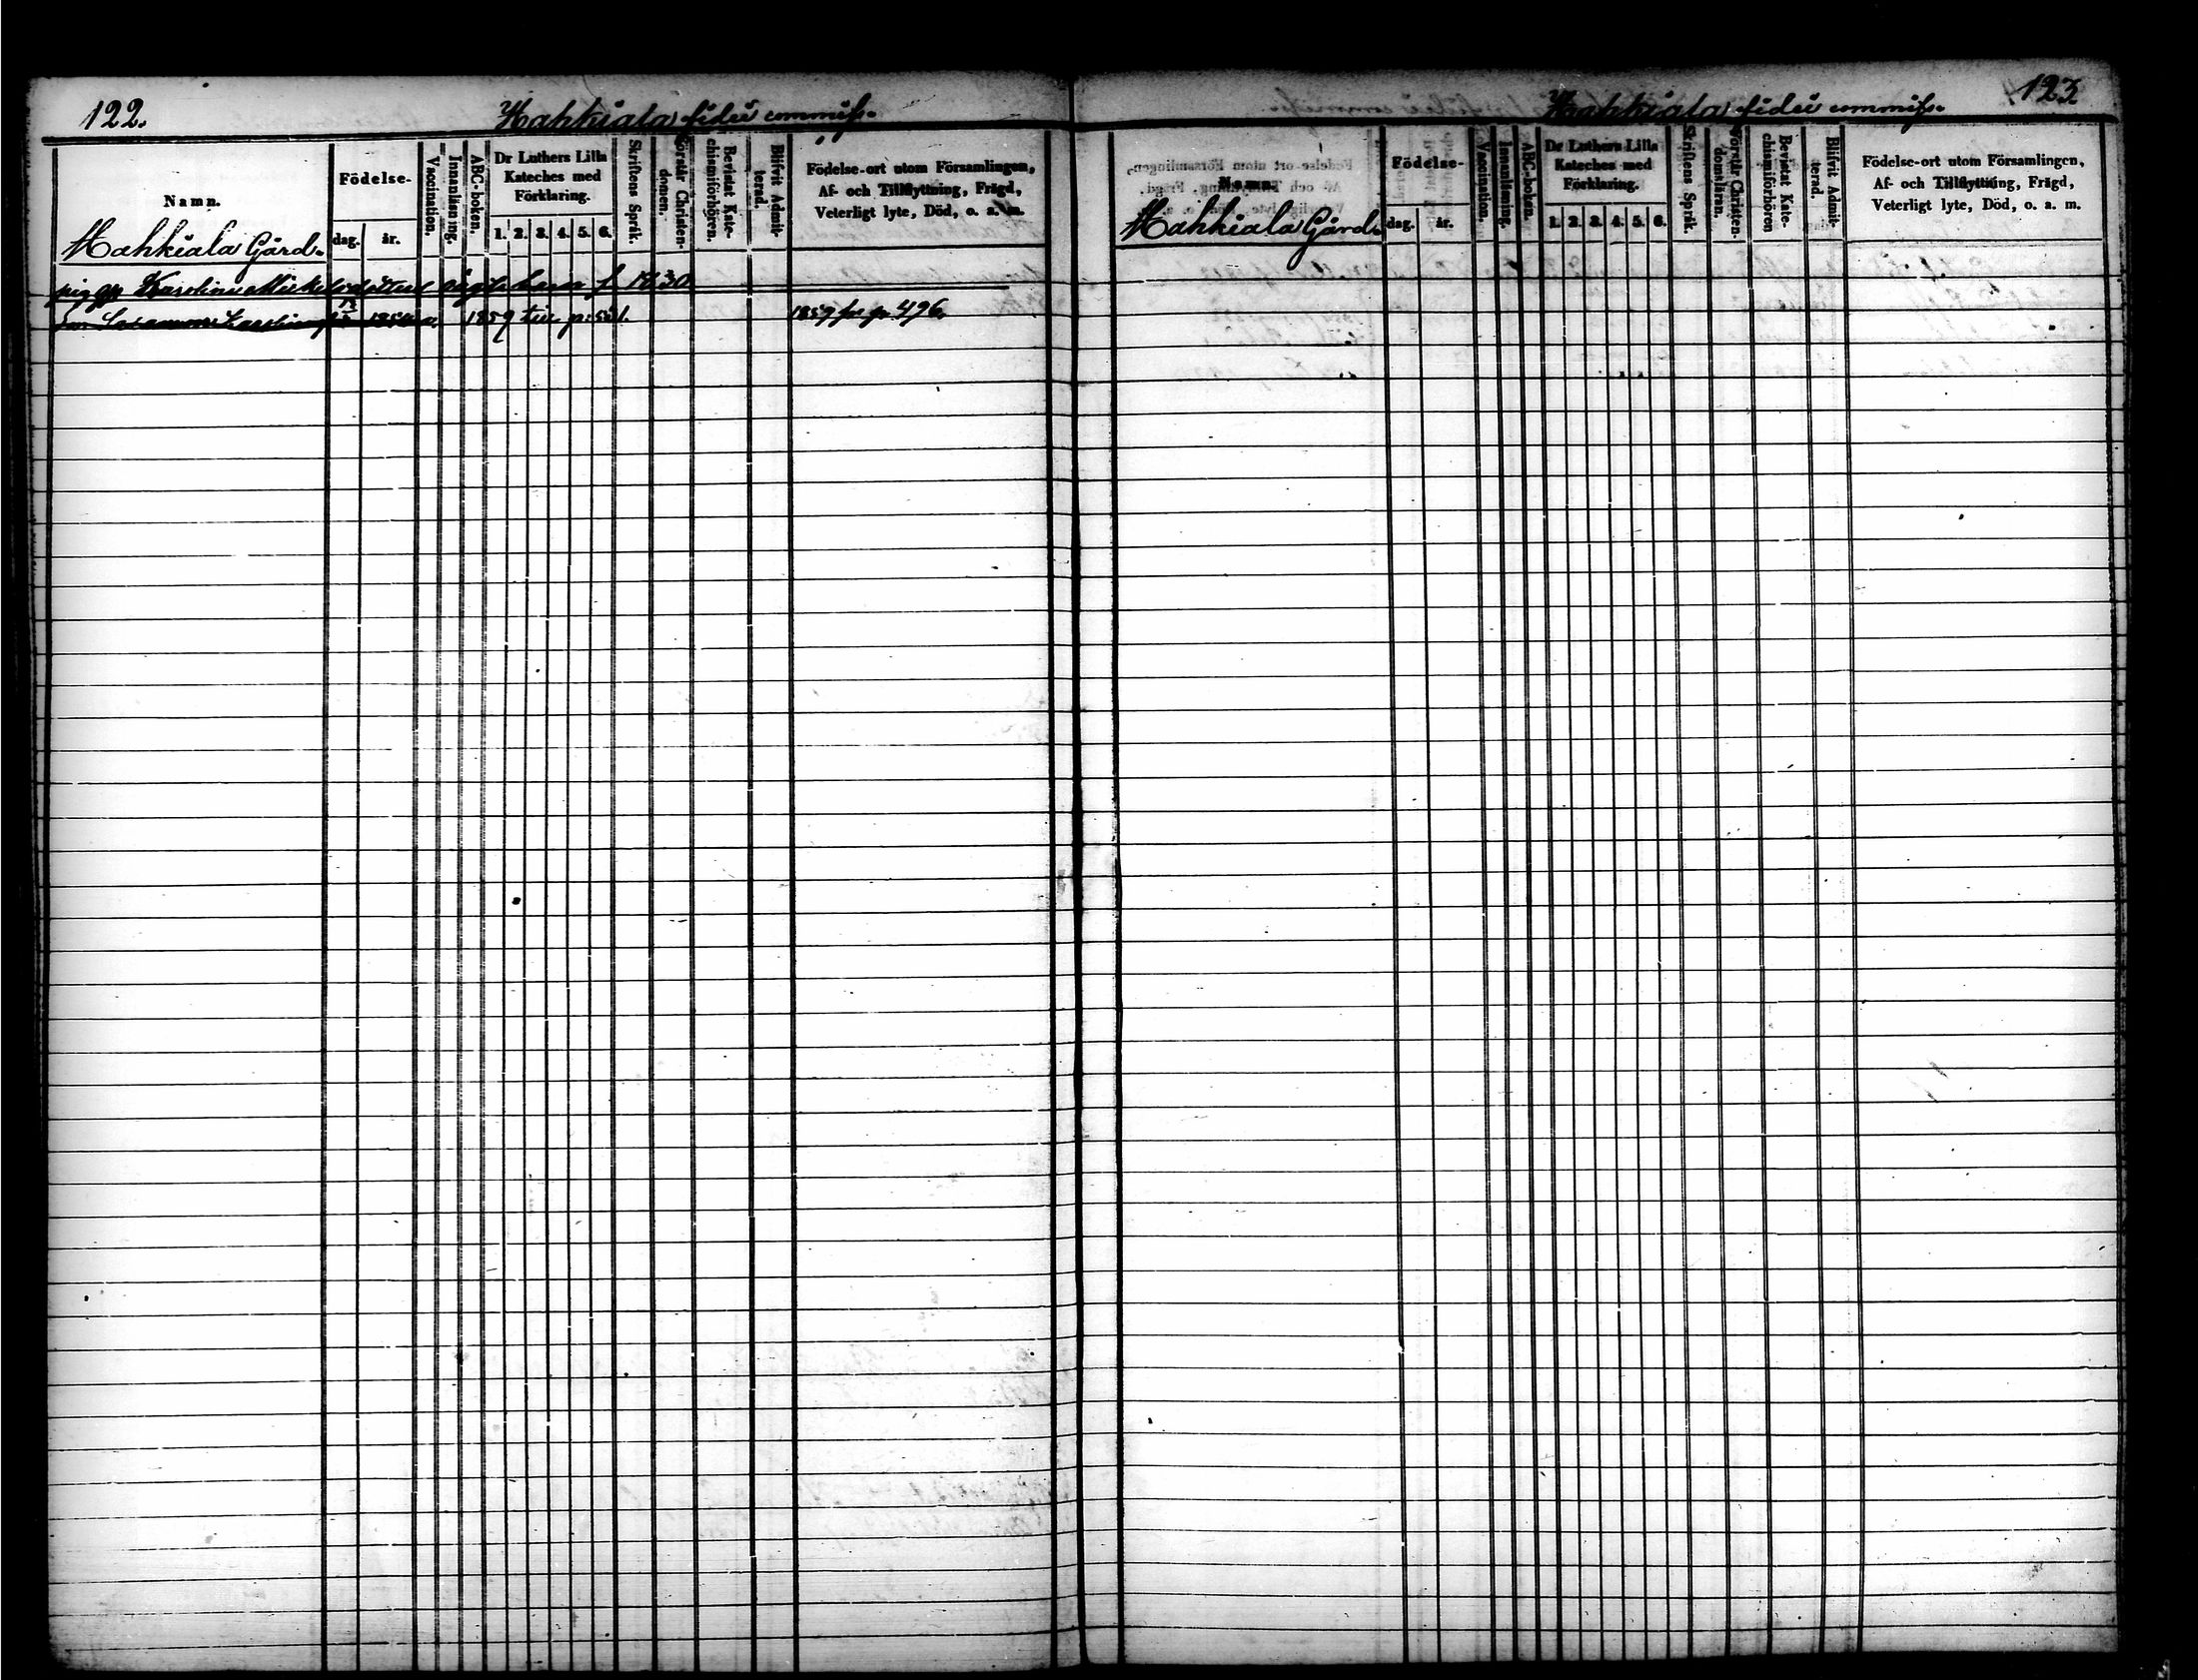 122.
Hahkiala fidei commiss.
Namn.
Födelse-
dag. år.
Vaccination.
Innanläsning.
ABC-boken.
Dr Luthers Lilla
Kateches med
Förklaring.
1. 2. 3. 4. 5. 6.
Skriftens Språk.
Förstår Christen-
domen.
Bevistat Kate-
chismiförhören.
Blifvit Admit-
terad.
Födelse-ort utom Församlingen,
Af- och Tillflyttning, Frägd,
Veterligt lyte, Död, o. a. m.
Hahkiala Gård.
Karolina Michelsdotters f. 1830
1859 p. 51. 1859 fr. p. 496.
123.
Hahkiala fidei commiss.
Namn.
Födelse-
dag. år.
Vaccination.
Innanläsning.
ABC-boken.
Dr Luthers Lilla
Kateches med
Förklaring.
1. 2. 3. 4. 5. 6.
Skriftens Språk.
Förstår Christen-
domsläran.
Bevistat Kate-
chismiförhören
Blifvit Admit-
terad.
Födelse-ort utom Församlingen,
Af- och Tillflyttning, Frägd,
Veterligt lyte, Död, o. a. m.
Hahkiala Gård.